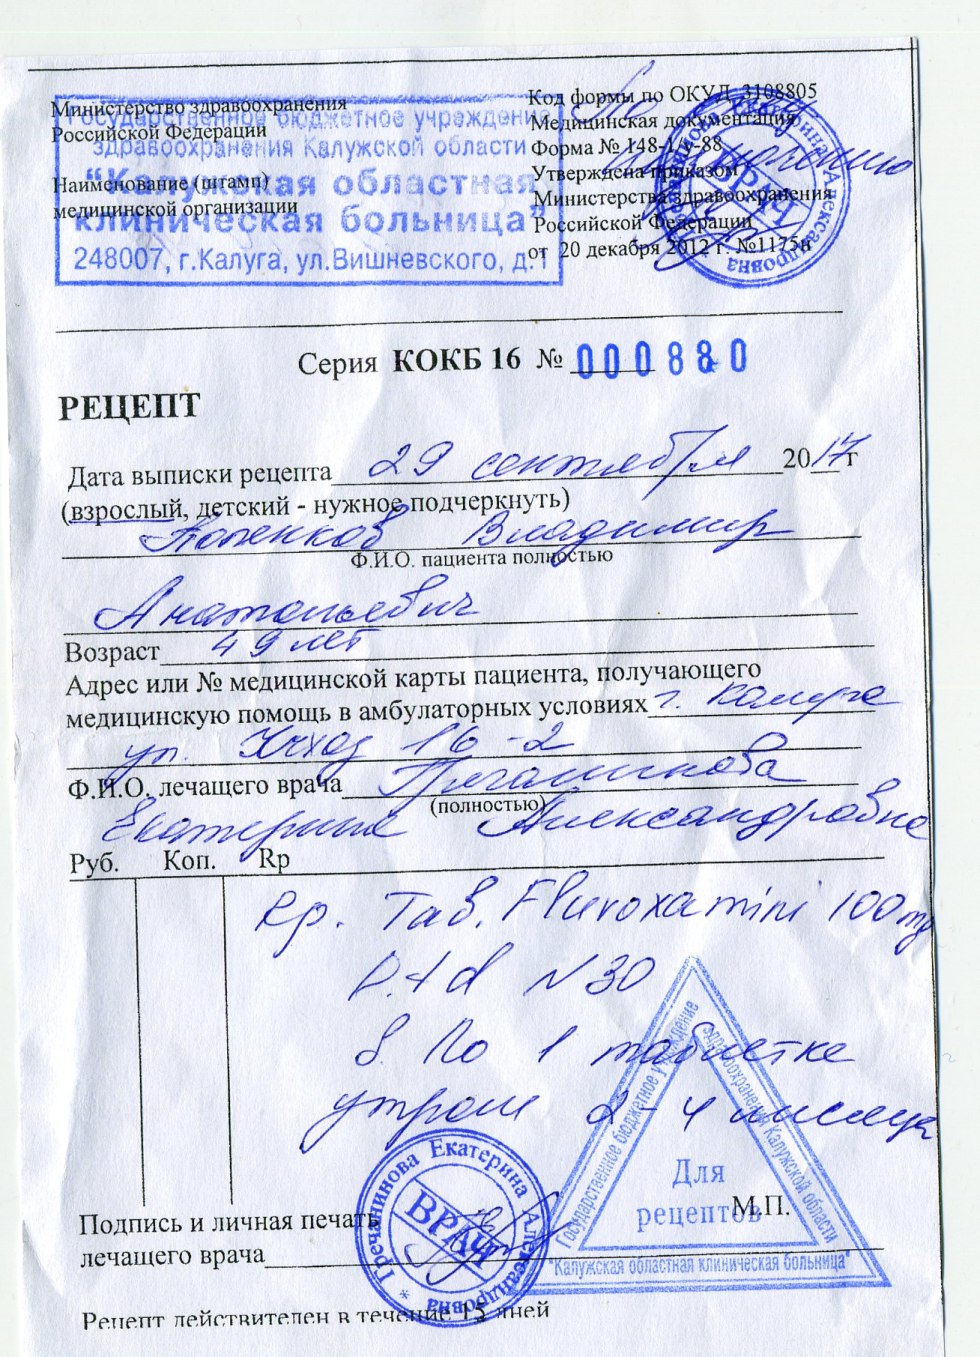 Министерство здравоохранения
Российской Федерации
Государственное бюджетное учреждение
здравоохранения Калужской области
"Калужская областная
клиническая больница"
248007, г.Калуга, ул.Вишневского, д.1
Наименование (штамп)
медицинской организации
Код формы по ОКУД 3108805
Медицинская документация
Форма № 148-1/у-88
Утверждена приказом
Министерства здравоохранения
Российской Федерации
от 20 декабря 2012 г. №1175н
ВРАЧ
Серия КОКБ 16 № 000880
РЕЦЕПТ
Дата выписки рецепта 29 сентября 2017 г
(взрослый, детский - нужное подчеркнуть)
Владимир
Ф.И.О. пациента полностью
Анатольевич
Возраст 49 лет
Адрес или № медицинской карты пациента, получающего
медицинскую помощь в амбулаторных условиях г. Калуга
ул. 16-2
Ф.И.О. лечащего врача Гречанинова
(полностью)
Екатерина Александровна
Руб. Коп. Rp
Rp. Tab. Fluvoxamini 100 mg
D.t.d N 30
S. По 1 таблетке
утром 2-4 месяца
Государственное бюджетное учреждение
здравоохранения Калужской области
"Калужская областная клиническая больница"
Для
рецептов
М.П.
Подпись и личная печать
лечащего врача
Гречанинова Екатерина Александровна
ВРАЧ
Рецепт действителен в течение 15 дней